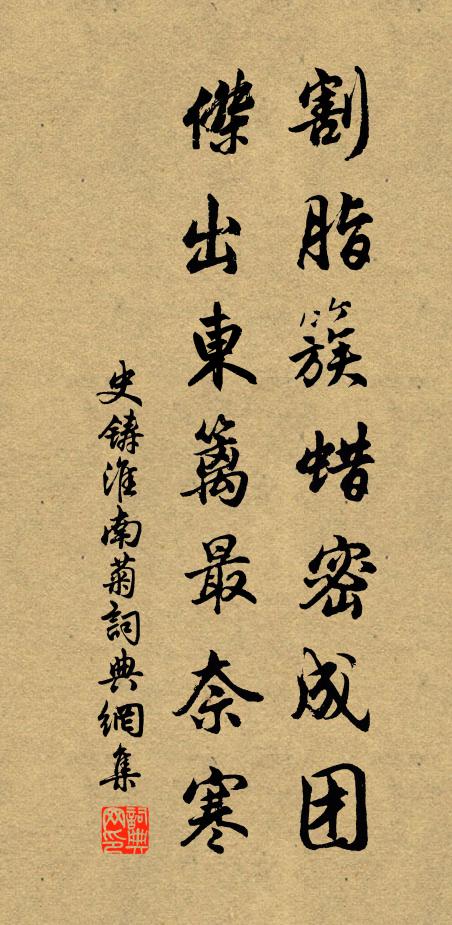 割脂簇蜡密成团
傑出東籬最奈寒
史鑄淮南菊詞典網集
詞典网印